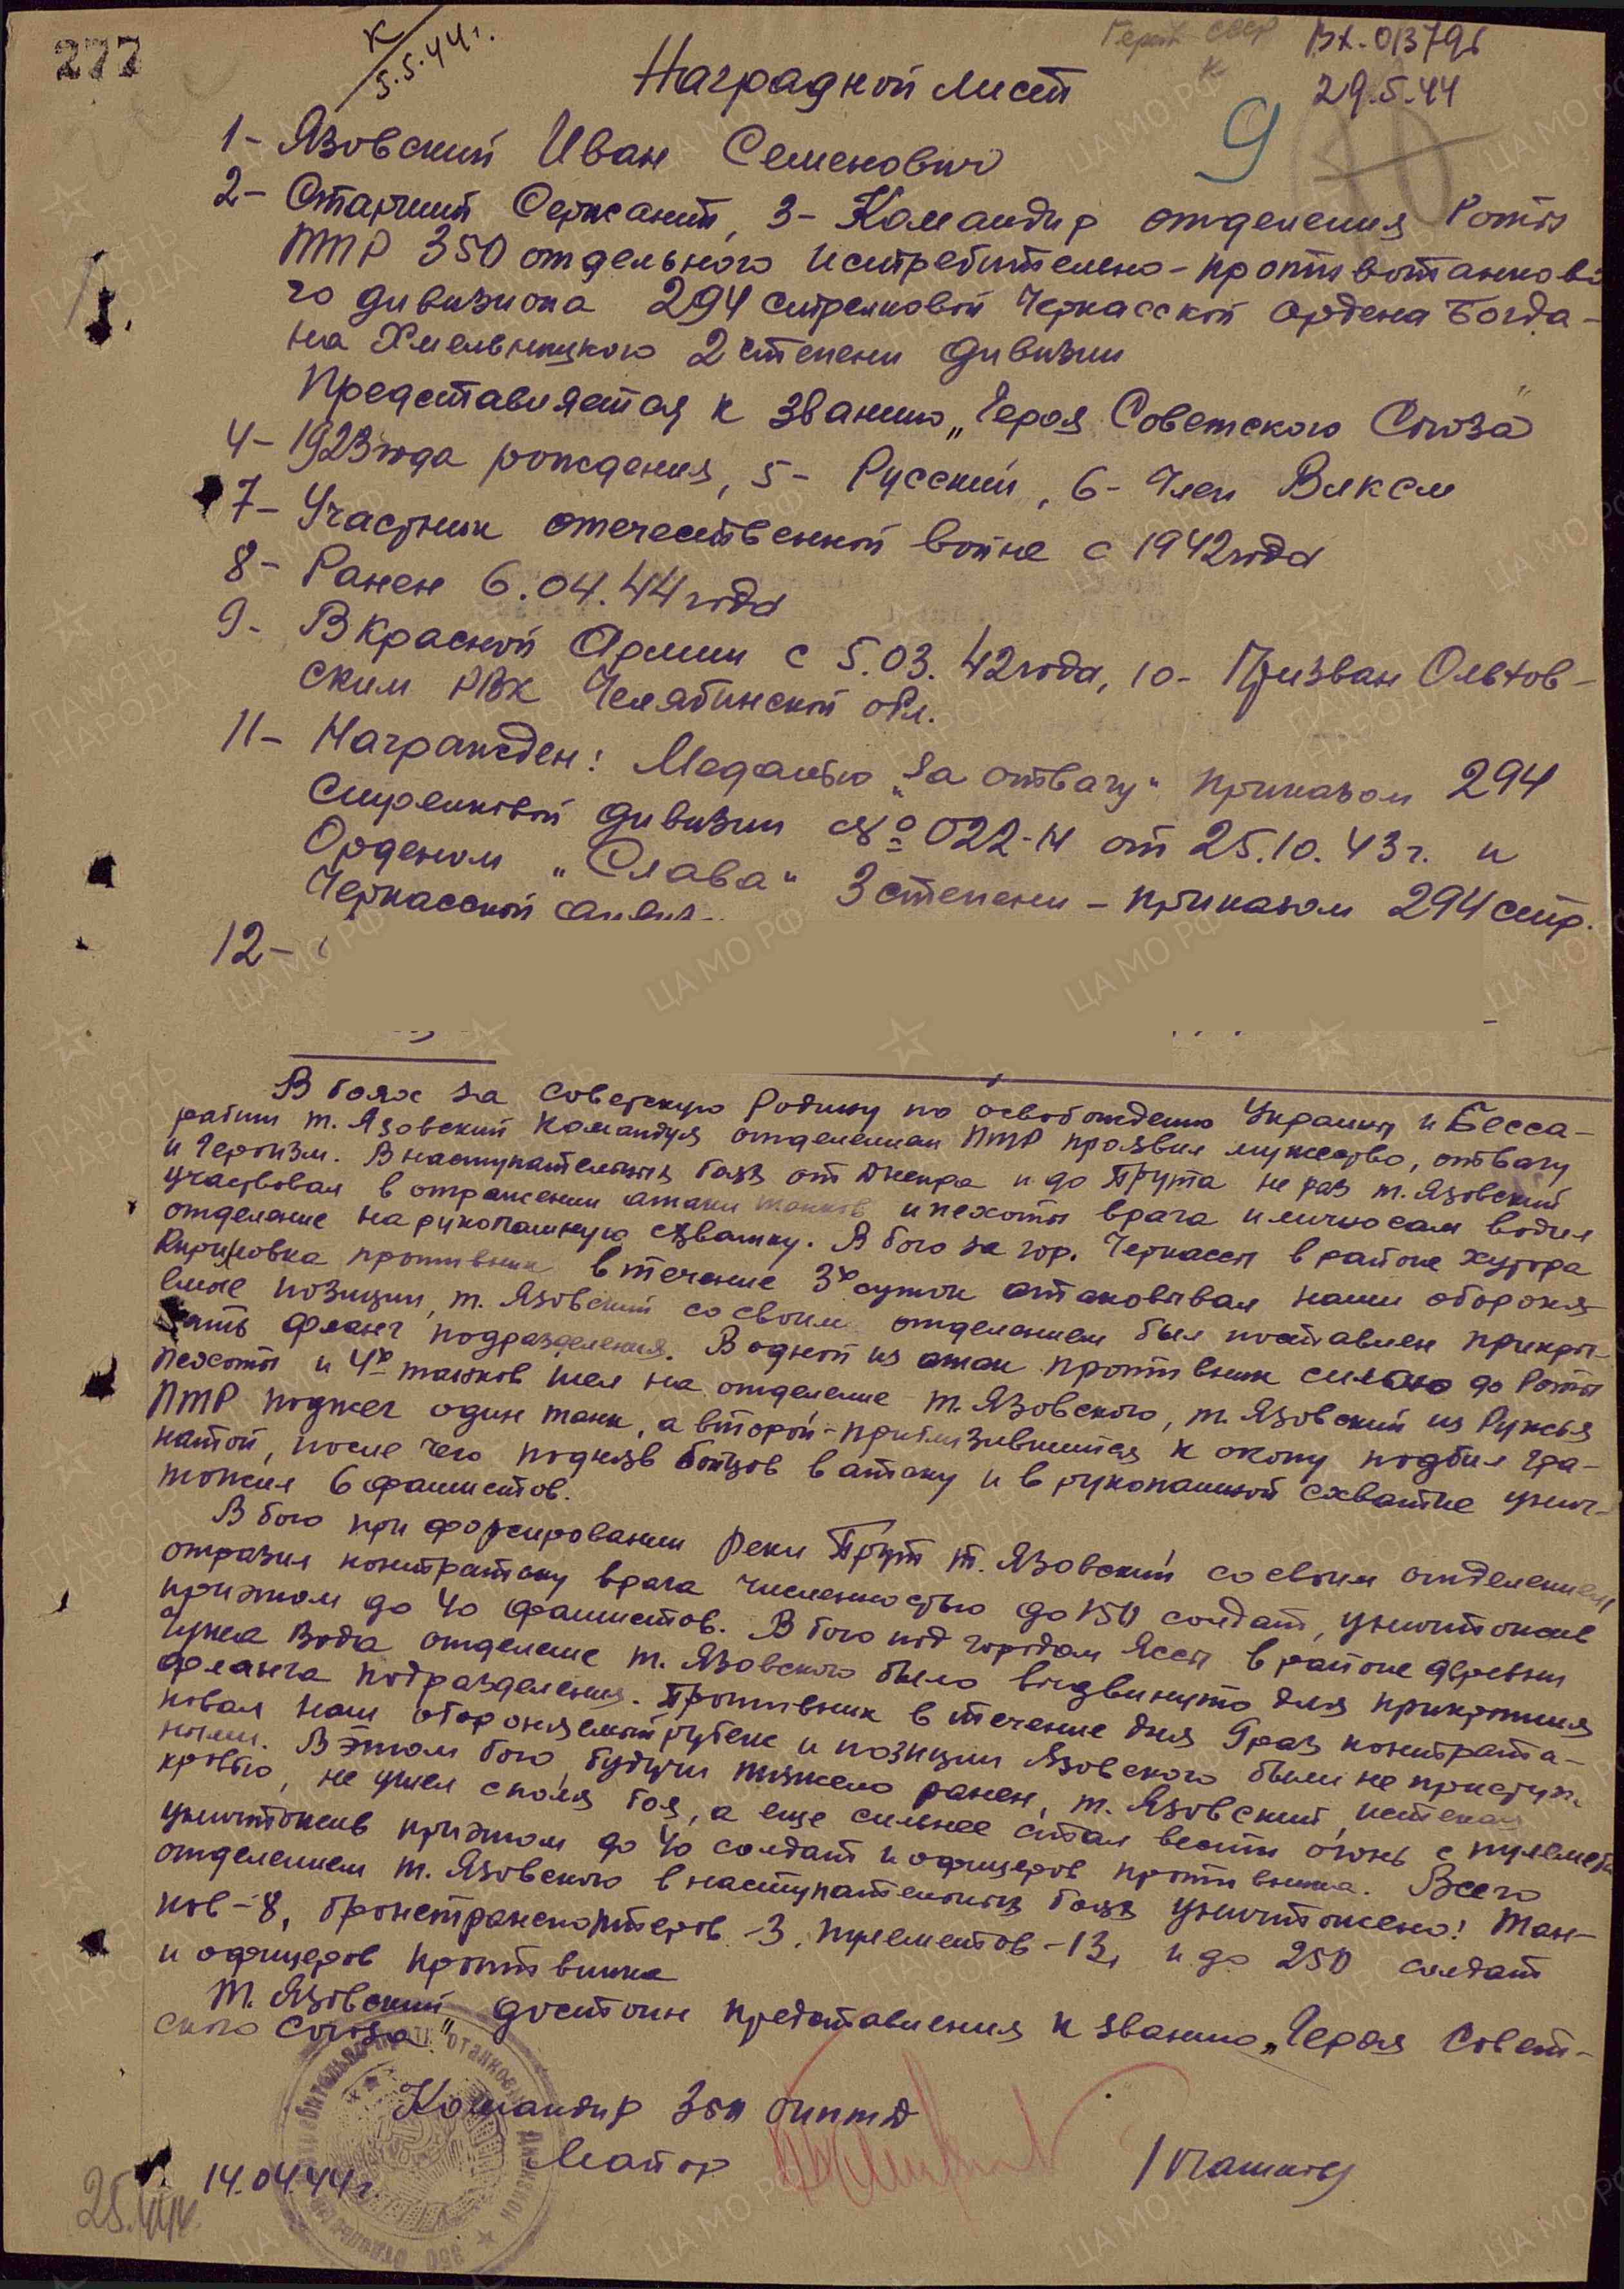 277
К
5.5.44г.
Герой СССР
к
Вх. 013796
29.5.44
9
10
Наградной лист
1- Язовский Иван Семенович
2- Старший Сержант, 3- Командир отделения Роты
ПТР 350 отдельного истребительно-противотанково
го дивизиона 294 стрелковой Черкасской ордена Богда-
на Хмельницкого 2 степени дивизии
Представляется к званию „Героя Советского Союза"
4- 1923 года рождения, 5- Русский, 6- Член Влксм
7- Участник отечественной войне с 1942 года
8- Ранен 6.04.44 года
9- В Красной Армии с 5.03.42 года, 10- Призван Ольхов-
ским РВК Челябинской обл.
11- Награжден: Медалью „За отвагу" приказом 294
Стрелковой дивизии № 022-Н от 25.10.43г. и
Орденом „Слава" 3 степени - приказом 294 стр.
Черкасской
12-
В боях за советскую Родину по освобождению Украины и Бесса-
рабии т. Язовский командуя отделением ПТР проявил мужество, отвагу
и Героизм. В наступательных боях от Днепра и до Прута не раз т. Язовский
участвовал в отражении атаки танков и пехоты врага и лично сам водил
отделение на рукопашную схватку. В бою за гор. Черкассы в районе хутора
Кириловка противник в течение 3х суток атаковывал наши обороня-
емые позиции, т. Язовский со своим отделением был поставлен прикры-
вать фланг подразделения. В одной из атак противник силою до Роты
пехоты и 4х танков шел на отделение т. Язовского, т. Язовский из Ружья
ПТР поджег один танк, а второй - приблизившийся к окопу подбил гра-
натой, после чего подняв бойцов в атаку и в рукопашной схватке унич-
тожил 6 фашистов.
В бою при форсировании реки Прут т. Язовский со своим отделением
отразил контратаку врага численностью до 150 солдат, уничтожив
при этом до 40 фашистов. В бою под городом Яссы в районе деревни
Чужа Вода отделение т. Язовского было выдвинуто для прикрытия
фланга подразделения. Противник в течение дня 9 раз контрата-
ковал наш обороняемый рубеж и позиции Язовского были не приступ-
ными. В этом бою, будучи тяжело ранен, т. Язовский, истекая
кровью, не ушел с поля боя, а еще сильнее стал вести огонь с пулемета
уничтожив при этом до 40 солдат и офицеров противника. Всего
отделением т. Язовского в наступательных боях уничтожено: Тан-
ков - 8, бронетранспортеров - 3, пулеметов - 13, и до 250 солдат
и офицеров противника
Т. Язовский достоин представления к званию „Героя Совет-
ского Союза"
Командир 350 оиптд
Майор
/Пашков/
14.04.44г.